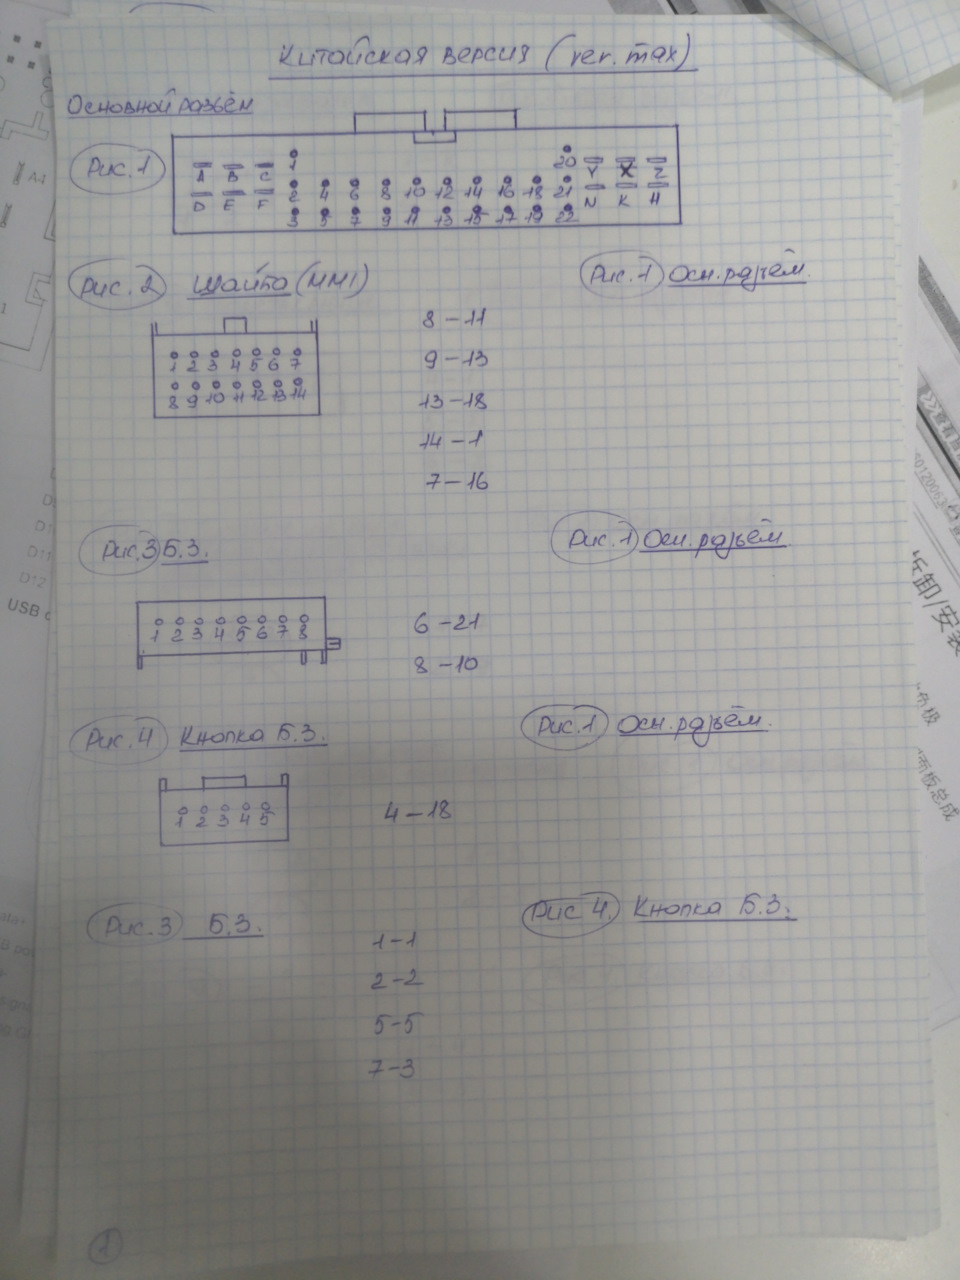 Китайская версия (ver. max)
Основной разъём
Рис. 1
1 20
A B C Y X Z
2 4 6 8 10 12 14 16 18 21
D E F N K H
3 5 7 9 11 13 15 17 19 22
Рис. 2 Шайба (MMI) Рис. 1 Осн. разъём.
1 2 3 4 5 6 7
8 9 10 11 12 13 14
8 - 11
9 - 13
13 - 18
14 - 1
7 - 16
Рис. 3 Б.З. Рис. 1 Осн. разъём.
1 2 3 4 5 6 7 8
6 - 21
8 - 10
Рис. 4 Кнопка Б.З. Рис. 1 Осн. разъём.
1 2 3 4 5
4 - 18
Рис. 3 Б.З. Рис 4. Кнопка Б.З.
1 - 1
2 - 2
5 - 5
7 - 3
1
A1
D11
D12
USB